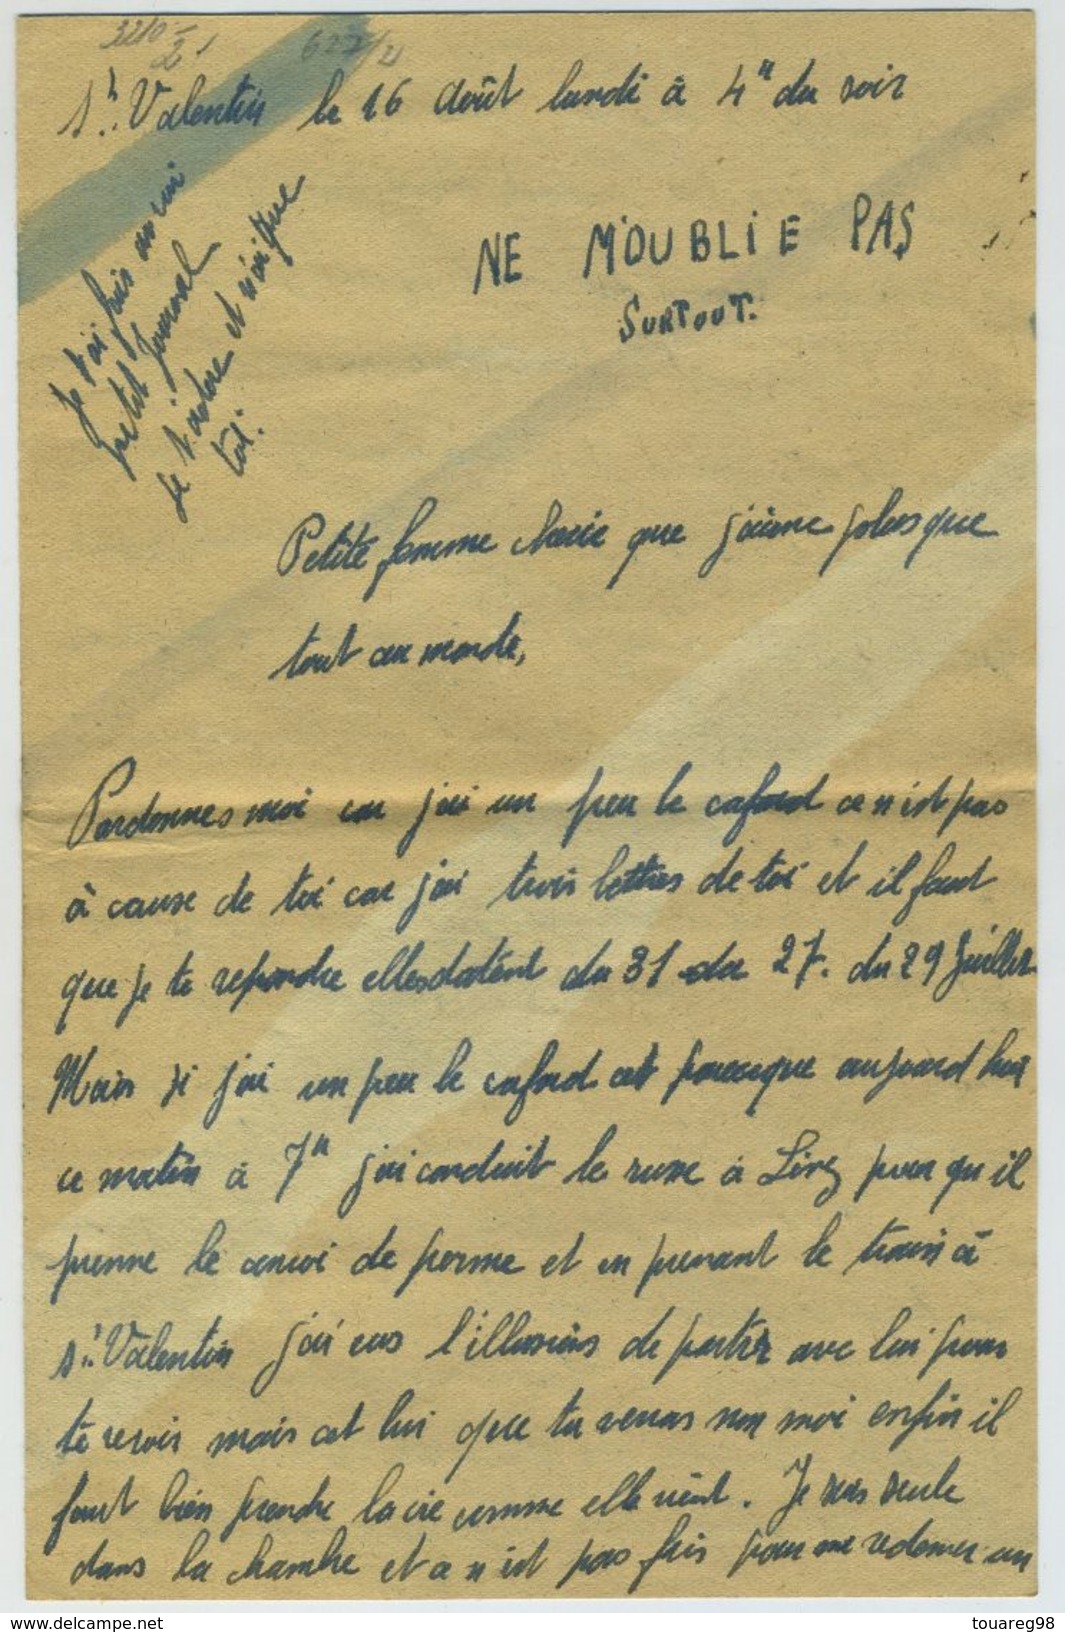 622/2
St Valentin le 16 août lundi à 4h du soir
Je t'ai fais un
petit Journal
Je t'adore et n'ai que
toi.
NE M'OUBLIE PAS
SURTOUT.
Petite femme cherie que j'aime plus que
tout au monde,
Pardonnes moi car j'ai un peu le cafard ce n'est pas
à cause de toi car j'ai trois lettres de toi et il faut
que je te reponde elles datent du 31 du 27. du 29 Juillet
Mais si j'ai un peu le cafard cet parceque aujourd hui
ce matin à 7h j'ai conduit le russe à Linz pour qu il
prenne le convoi de ferme et en prenant le train à
St Valentin j'ai eus l'illusions de partir avec lui pour
te revoir mais cet lui que tu verras non moi enfin il
faut bien prendre la vie comme elle vient. Je suis seule
dans la chambre et ce n'est pas fais pour me redonner un
www.delcampe.net
touareg98